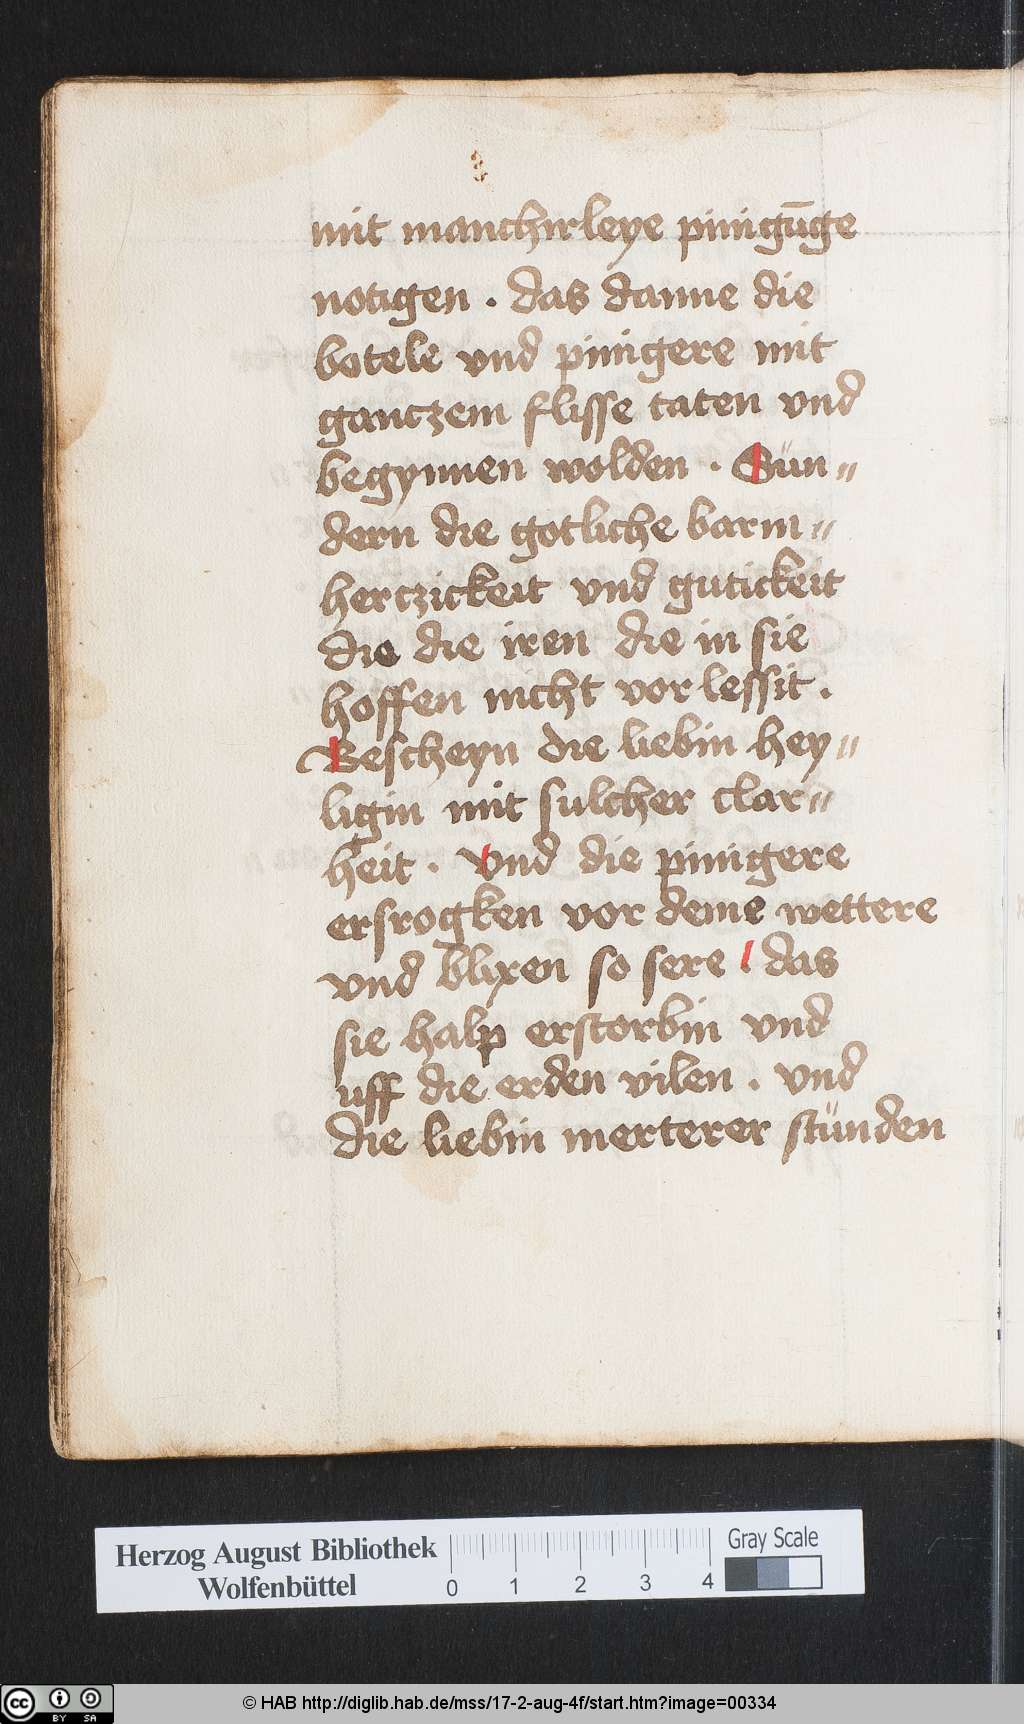 mit manchirleye pinigūge
notigen . das danne die
botele vnd pinigere mit
ganczem flisse taten vnd
begynnen wolden . Sün〃
dern die gotliche barm〃
herczickeit vnd gutickeit
die die iren die in sie
hoffen nicht vor lessit .
Bescheyn die liebin hey〃
ligin mit sulcher clar〃
heit . vnd die pinigere
ersrogken vor deme wettere
vnd blixen so sere . das
sie halp erstorbin vnd
uff die erden vilen . vnd
die liebin merterer stünden
Herzog August Bibliothek
Wolfenbüttel
0 1 2 3 4
Gray Scale
cc BY SA
© HAB http://diglib.hab.de/mss/17-2-aug-4f/start.htm?image=00334